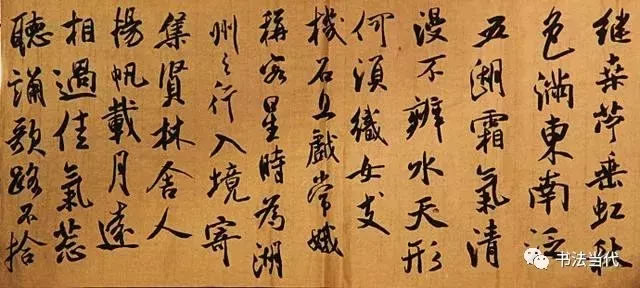 繼桒苧垂虹秋
色滿東南泛
五湖霜氣清
漫不辨水天形
何須織女支
機石且戲常娥
稱客星時為湖
州之行入境寄
集賢林舍人
揚帆載月遠
相過佳氣葱
聽誦歌路不拾
书法当代